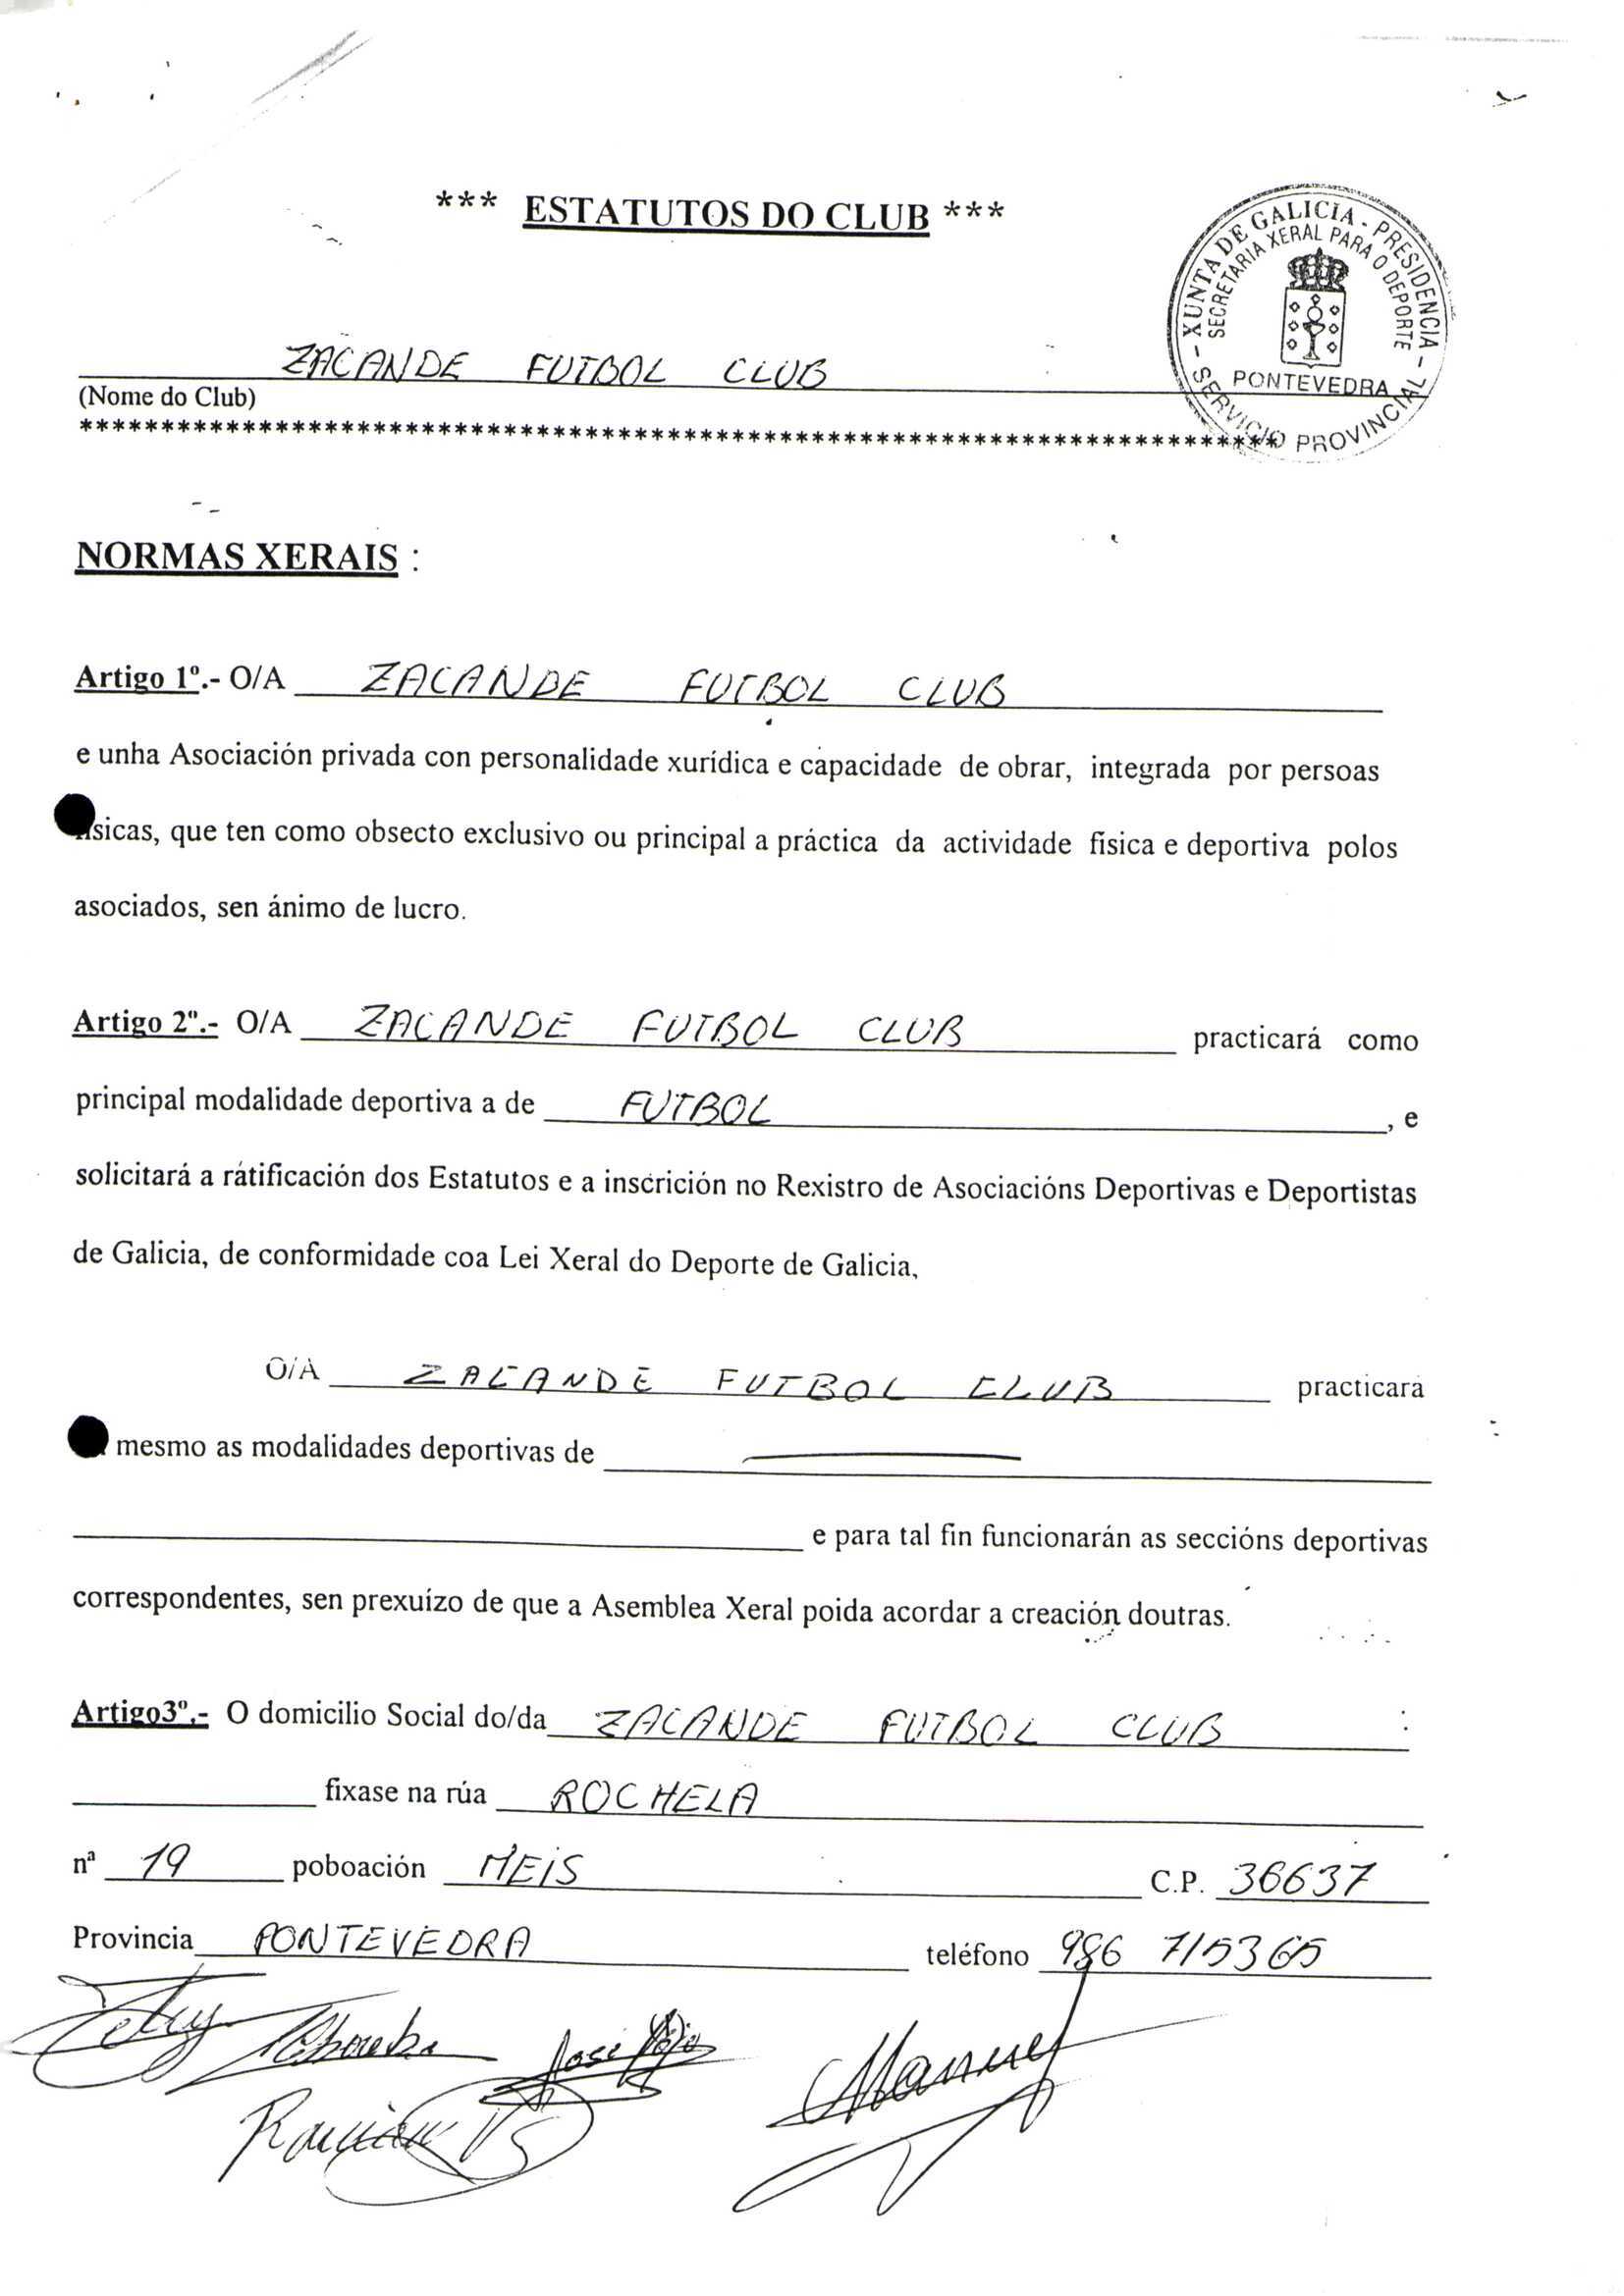 *** ESTATUTOS DO CLUB ***
XUNTA DE GALICIA - PRESIDENCIA - SERVICIO PROVINCIAL -
SECRETARIA XERAL PARA O DEPORTE
PONTEVEDRA
ZACANDE FUTBOL CLUB
(Nome do Club)
**************************************************************************
NORMAS XERAIS :
Artigo 1º.- O/A ZACANDE FUTBOL CLUB
e unha Asociación privada con personalidade xurídica e capacidade de obrar, integrada por persoas
sicas, que ten como obsecto exclusivo ou principal a práctica da actividade física e deportiva polos
asociados, sen ánimo de lucro.
Artigo 2º.- O/A ZACANDE FUTBOL CLUB practicará como
principal modalidade deportiva a de FUTBOL , e
solicitará a ratificación dos Estatutos e a inscrición no Rexistro de Asociacións Deportivas e Deportistas
de Galicia, de conformidade coa Lei Xeral do Deporte de Galicia,
O/A ZACANDE FUTBOL CLUB practicará
mesmo as modalidades deportivas de
e para tal fin funcionarán as seccións deportivas
correspondentes, sen prexuízo de que a Asemblea Xeral poida acordar a creación doutras.
Artigo3º.- O domicilio Social do/da ZACANDE FUTBOL CLUB
fixase na rúa ROCHELA
nª 19 poboación MEIS C.P. 36637
Provincia PONTEVEDRA teléfono 986 715365
José
Manuel